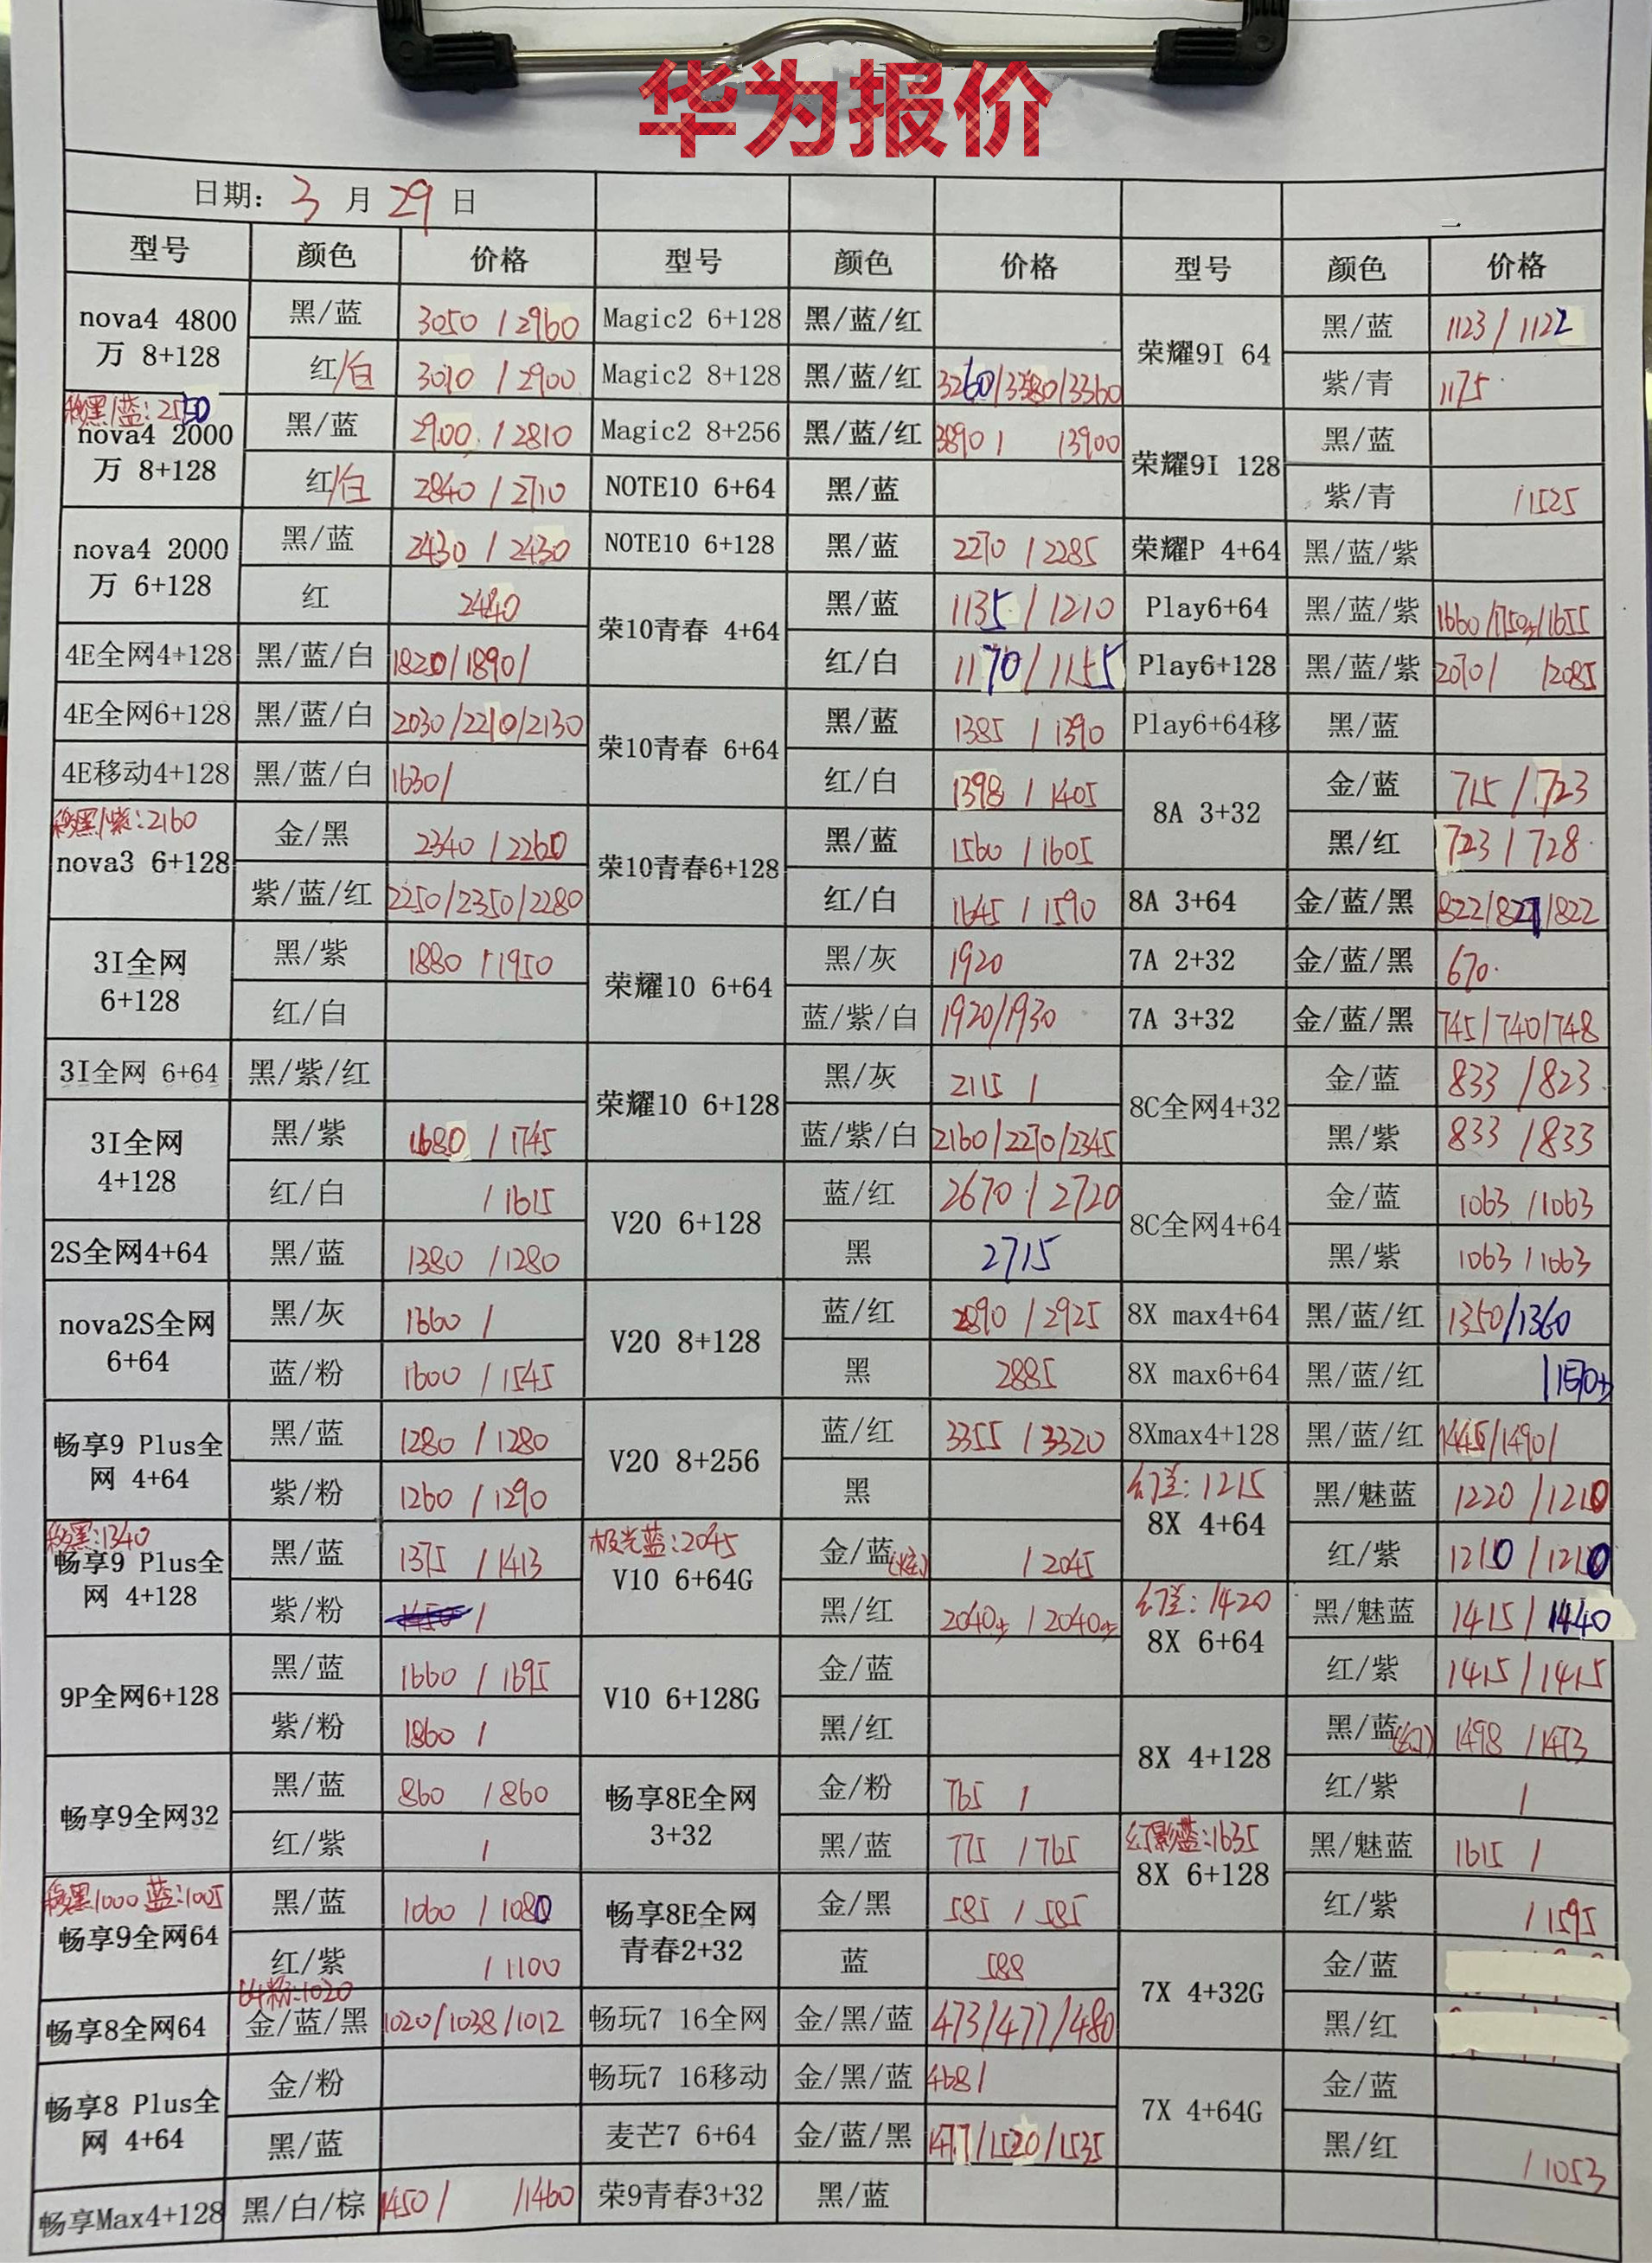 华为报价
日期: 3 月 29 日
型号 颜色 价格 型号 颜色 价格 型号 颜色 价格
nova4 4800万 8+128 黑/蓝 3050 / 2960
红/白 3010 / 2900
移黑/蓝:2550
nova4 2000万 8+128 黑/蓝 2900 / 2810
红/白 2840 / 2710
nova4 2000万 6+128 黑/蓝 2430 / 2430
红 2440
4E全网4+128 黑/蓝/白 1820/1890/
4E全网6+128 黑/蓝/白 2030/2210/2130
4E移动4+128 黑/蓝/白 1630/
移黑/紫:2160
nova3 6+128 金/黑 2340 / 2260
紫/蓝/红 2250/2350/2280
3I全网 6+128 黑/紫 1880 / 1950
红/白
3I全网 6+64 黑/紫/红
3I全网 4+128 黑/紫 1680 / 1745
红/白 / 1615
2S全网4+64 黑/蓝 1380 / 1280
nova2S全网 6+64 黑/灰 1660 /
蓝/粉 1600 / 1545
畅享9 Plus全网 4+64 黑/蓝 1280 / 1280
紫/粉 1260 / 1290
移黑:1340
畅享9 Plus全网 4+128 黑/蓝 1375 / 1413
紫/粉 /
9P全网6+128 黑/蓝 1660 / 1695
紫/粉 1860 /
畅享9全网32 黑/蓝 860 / 860
红/紫 /
移黑1000 蓝:1005
畅享9全网64 黑/蓝 1060 / 1080
红/紫 / 1100
64粉:1020
畅享8全网64 金/蓝/黑 1020/1038/1012
畅享8 Plus全网 4+64 金/粉
黑/蓝
畅享Max4+128 黑/白/棕 1450/ /1460
Magic2 6+128 黑/蓝/红
Magic2 8+128 黑/蓝/红 3260/3380/3360
Magic2 8+256 黑/蓝/红 3890 / /3900
NOTE10 6+64 黑/蓝
NOTE10 6+128 黑/蓝 2270 / 2285
荣10青春 4+64 黑/蓝 1135 / 1210
红/白 1170 / 1155
荣10青春 6+64 黑/蓝 1385 / 1390
红/白 1398 / 1405
荣10青春6+128 黑/蓝 1560 / 1605
红/白 1645 / 1590
荣耀10 6+64 黑/灰 1920
蓝/紫/白 1920/1930
荣耀10 6+128 黑/灰 2115 /
蓝/紫/白 2160/2270/2345
V20 6+128 蓝/红 2670 / 2720
黑 2715
V20 8+128 蓝/红 2890 / 2925
黑 2885
V20 8+256 蓝/红 3355 / 3320
黑
极光蓝:2045
V10 6+64G 金/蓝(炫) / 2045
黑/红 2040 / 2040
V10 6+128G 金/蓝
黑/红
畅享8E全网 3+32 金/粉 765 /
黑/蓝 775 / 765
畅享8E全网 青春2+32 金/黑 585 / 585
蓝 588
畅玩7 16全网 金/黑/蓝 473/477/480
畅玩7 16移动 金/黑/蓝 468/
麦芒7 6+64 金/蓝/黑 1477/1520/1535
荣9青春3+32 黑/蓝
荣耀9I 64 黑/蓝 1123 / 1122
紫/青 1175
荣耀9I 128 黑/蓝
紫/青 / 1525
荣耀P 4+64 黑/蓝/紫
Play6+64 黑/蓝/紫 1660/1750/1655
Play6+128 黑/蓝/紫 2070/ /2085
Play6+64移 黑/蓝
8A 3+32 金/蓝 715 / 723
黑/红 723 / 728
8A 3+64 金/蓝/黑 822/827/822
7A 2+32 金/蓝/黑 670
7A 3+32 金/蓝/黑 745/740/748
8C全网4+32 金/蓝 833 / 823
黑/紫 833 / 833
8C全网4+64 金/蓝 1063 / 1063
黑/紫 1063 / 1063
8X max4+64 黑/蓝/红 1350/1360
8X max6+64 黑/蓝/红
8Xmax4+128 黑/蓝/红 1445/1490/
幻:1215
8X 4+64 黑/魅蓝 1220 / 1210
红/紫 1210 / 1210
幻:1420
8X 6+64 黑/魅蓝 1415 / 1440
红/紫 1415 / 1415
8X 4+128 黑/蓝(幻) 1498 / 1473
红/紫 /
幻影蓝:1635
8X 6+128 黑/魅蓝 1615 /
红/紫 / 1595
7X 4+32G 金/蓝
黑/红
7X 4+64G 金/蓝
黑/红 / 1053